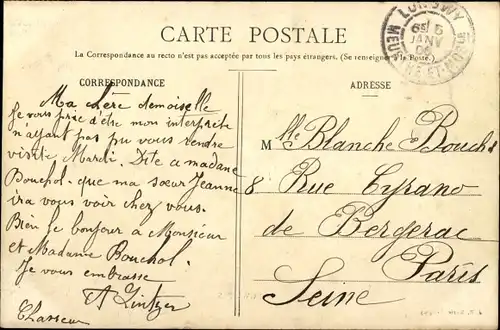 CARTE POSTALE
La Correspondance au recto n'est pas acceptée par tous les pays étrangers. (Se renseigner à la Poste.)
CORRESPONDANCE
Ma chère demoiselle
Je vous prie d'être mon interprète
n'ayant pas pu vous rendre
visite Mardi. Dite a madame
Bouchol que ma sœur Jeanne
ira vous voir chez vous.
Bien le bonjour à Monsieur
et Madame Bouchol.
Je vous embrasse
Chasseur
ADRESSE
M lle Blanche Bouchol
8 Rue Cyrano
de Bergerac
Paris
Seine
LONGWY
5
JANV
MEURTHE-ET-MOSELLE